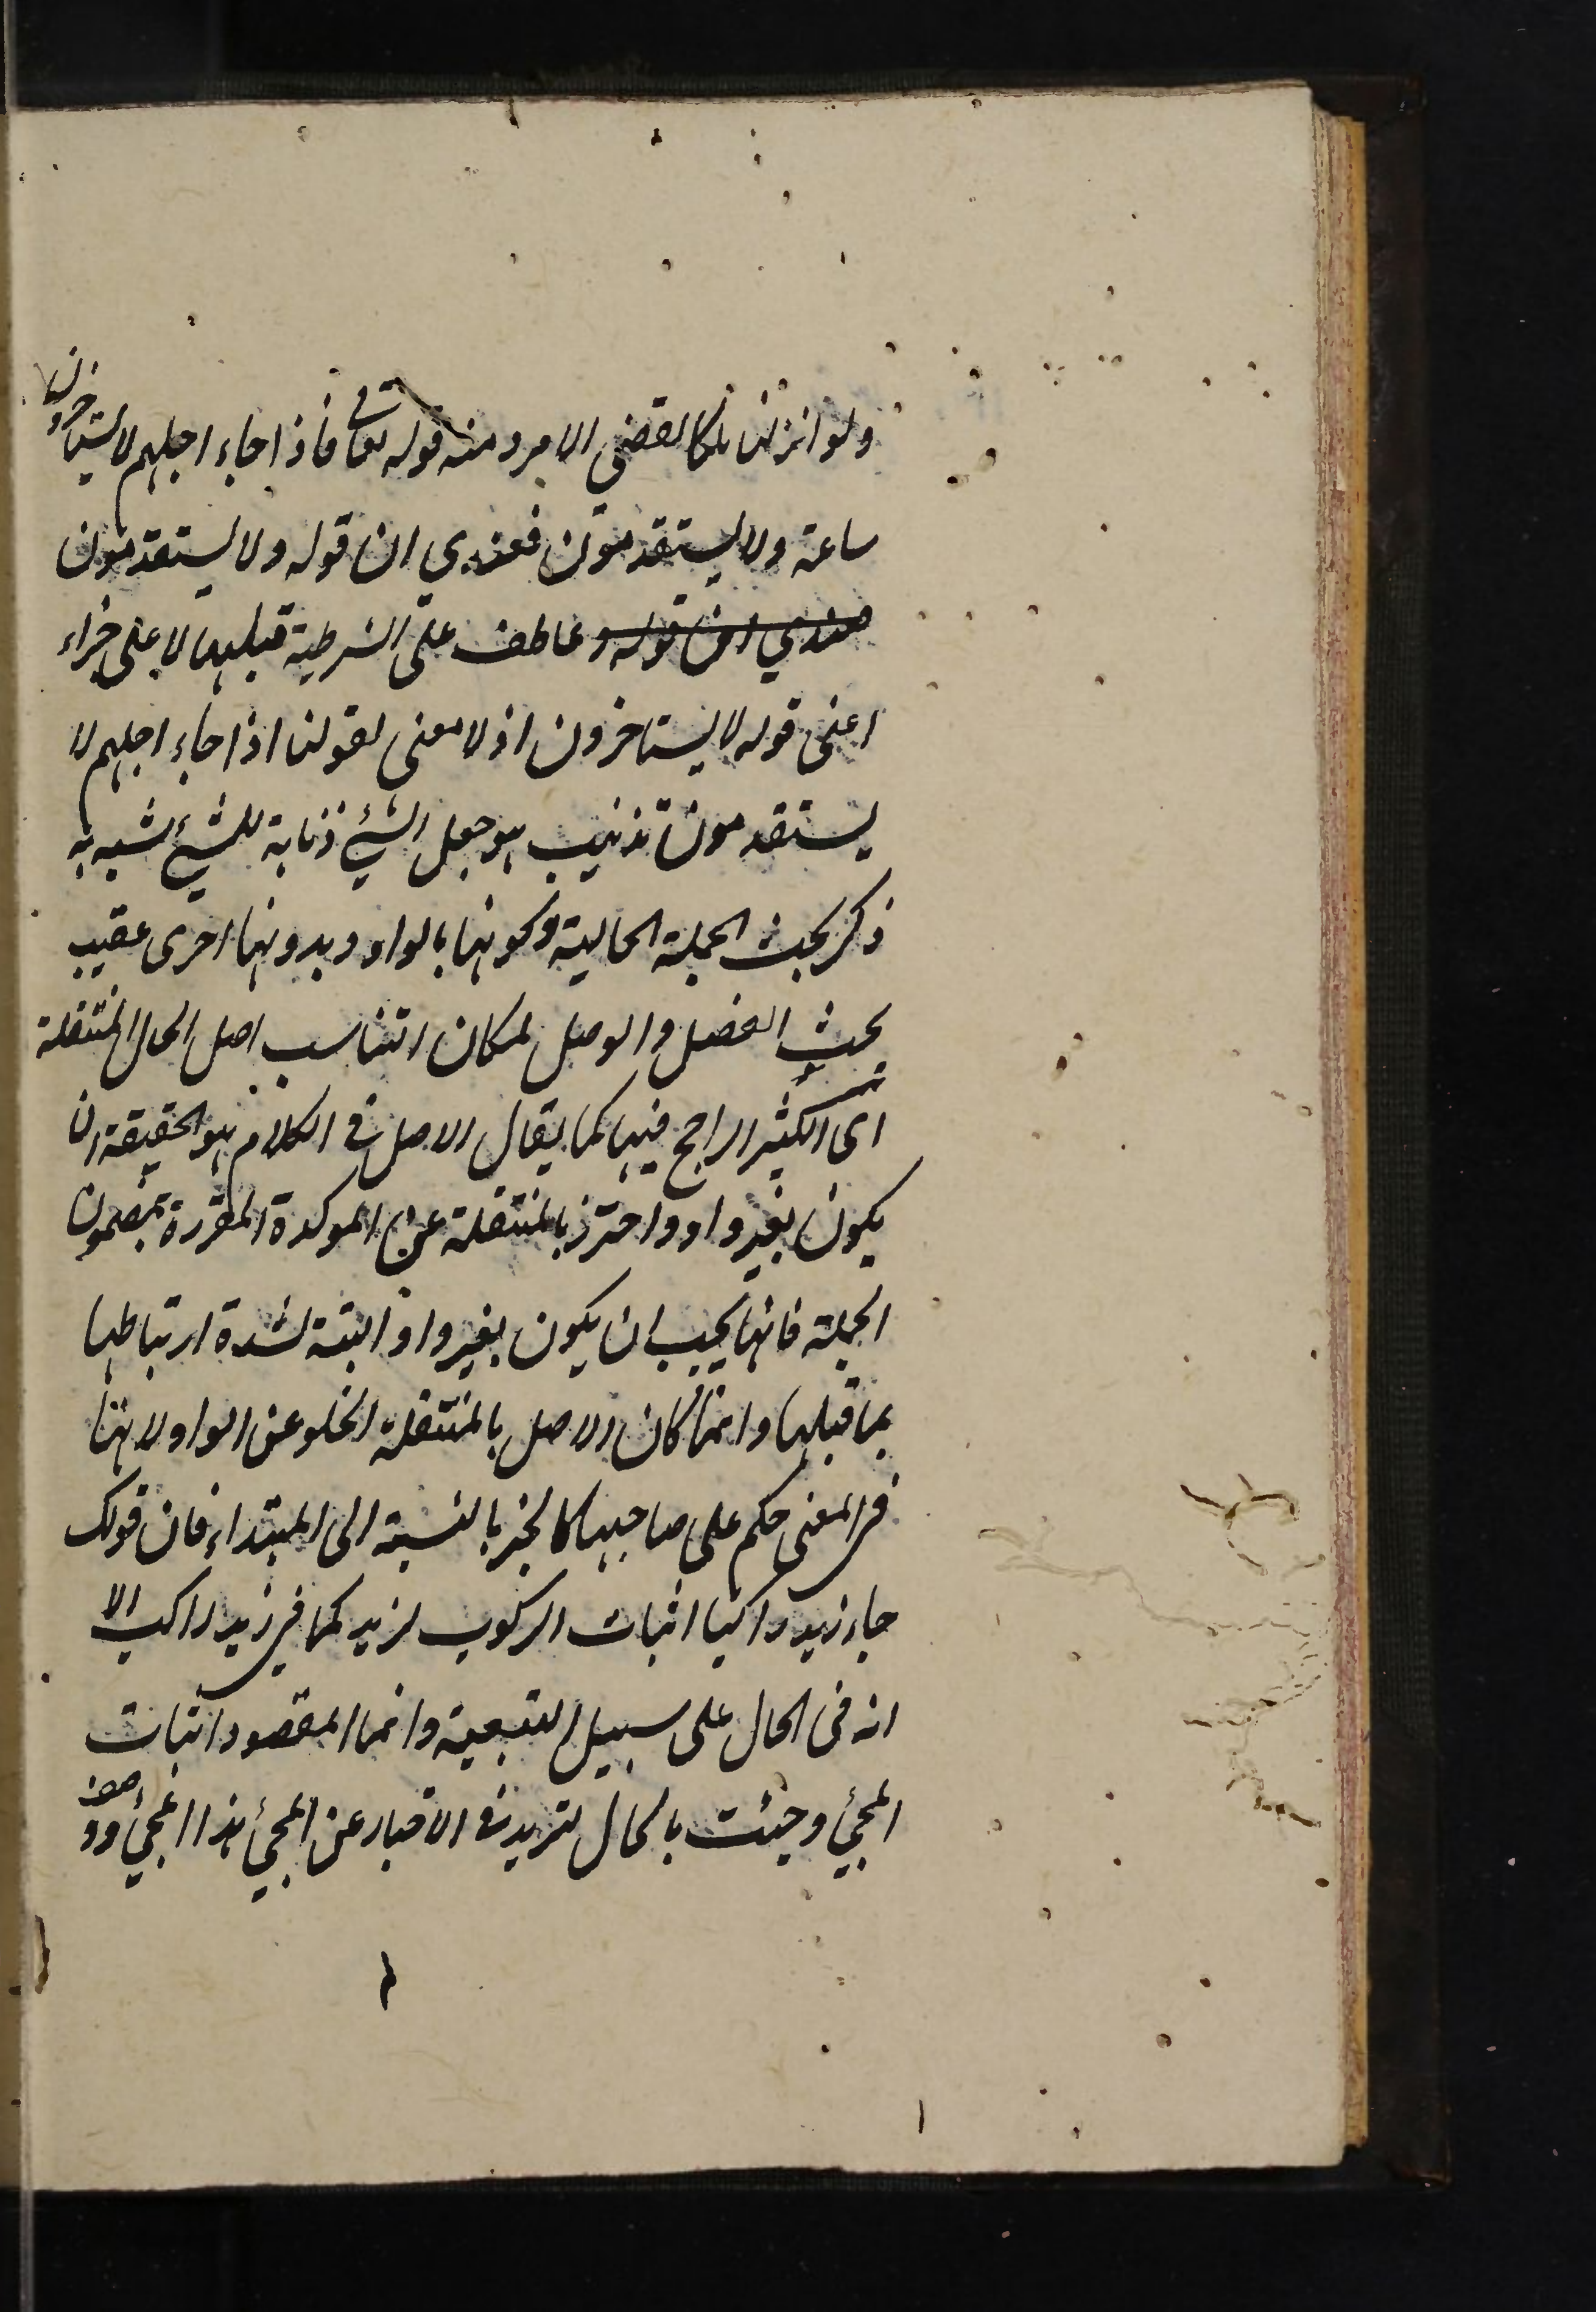 ولو انزلنا ملكا لقضي الامر ومنه قوله تعالى فاذا جاء اجلهم لا يستاخرون
ساعة ولا يستقدمون فعندي ان قوله ولا يستقدمون
عندي ان قوله و عاطف على الشرطية قبلها لا على جزاء
اعنى قوله لا يستاخرون اذ لا معنى لقولنا اذا جاء اجلهم لا
يستقدمون تذنيب هو جعل الشيء ذنابة للشيء شبه به
ذكر بحث الجملة الحالية وكونها بالواو وبدونها اخرى عقيب
بحث الفصل والوصل لمكان التناسب اصل الحال المنتقلة
اى الكثير الراجح فيها كما يقال الاصل في الكلام هو الحقيقة ان
يكون بغير واو واحترز بالمنتقلة عن الموكدة المقررة لمضمون
الجملة فانها يجب ان يكون بغير واو البتة لشدة ارتباطها
بما قبلها وانما كان الاصل بالمنتقلة الخلو عن الواو لانها
في المعنى حكم على صاحبها كالخبر بالنسبة الى المبتداء فان قولك
جاء زيد راكبا اثبات الركوب لزيد كما في زيد راكب الا
انه في الحال على سبيل التبعية وانما المقصود اثبات
المجئ وجئت بالحال لتزيد في الاخبار عن المجئ هذا المجئ ووصف